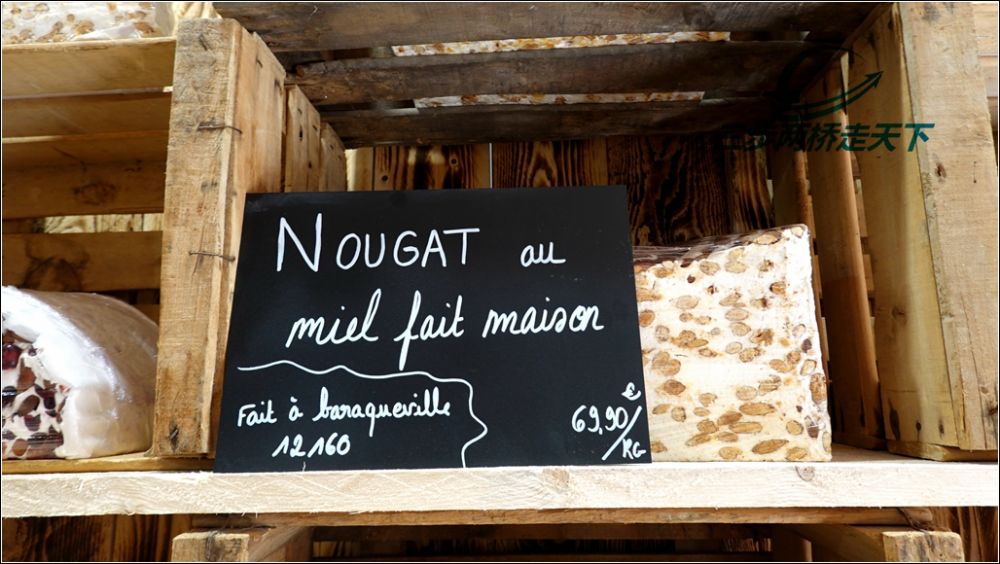 桥走天下
NOUGAT au
miel fait maison
Fait à baraqueville
12160
69,90€/KG